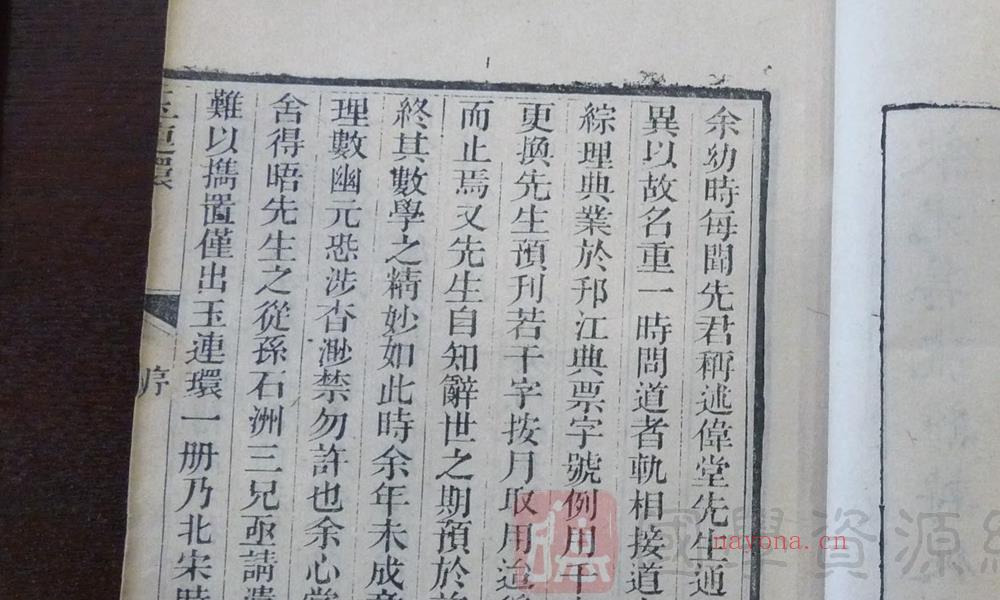 余幼時每聞先君稱述偉堂先生通
異以故名重一時問道者軌相接道
綜理典業於邗江典票字號例用千
更換先生預刊若干字按月取用迨
而止焉又先生自知辭世之期預於
終其數學之精妙如此時余年未成
理數幽元恐涉杳渺禁勿許也余心
舍得晤先生之從孫石洲三兄亟請
難以擕置僅出玉連環一册乃北宋時
玉連環
序
國學資源
nayona.cn